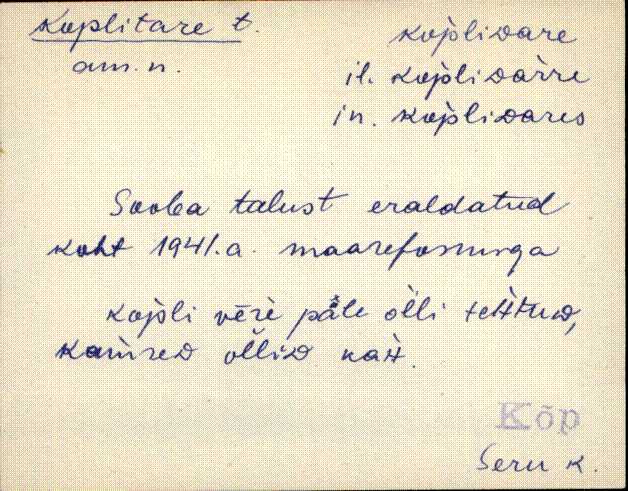 Koplitare t.
am. n.
kop̀liᴅare
il. kop̀liᴅàrre
in. kop̀liᴅares
Sooba talust eraldatud
koht 1941.a. maareformiga
kop̀li vēre päle õlli
õllid
Kõp
Seru k.